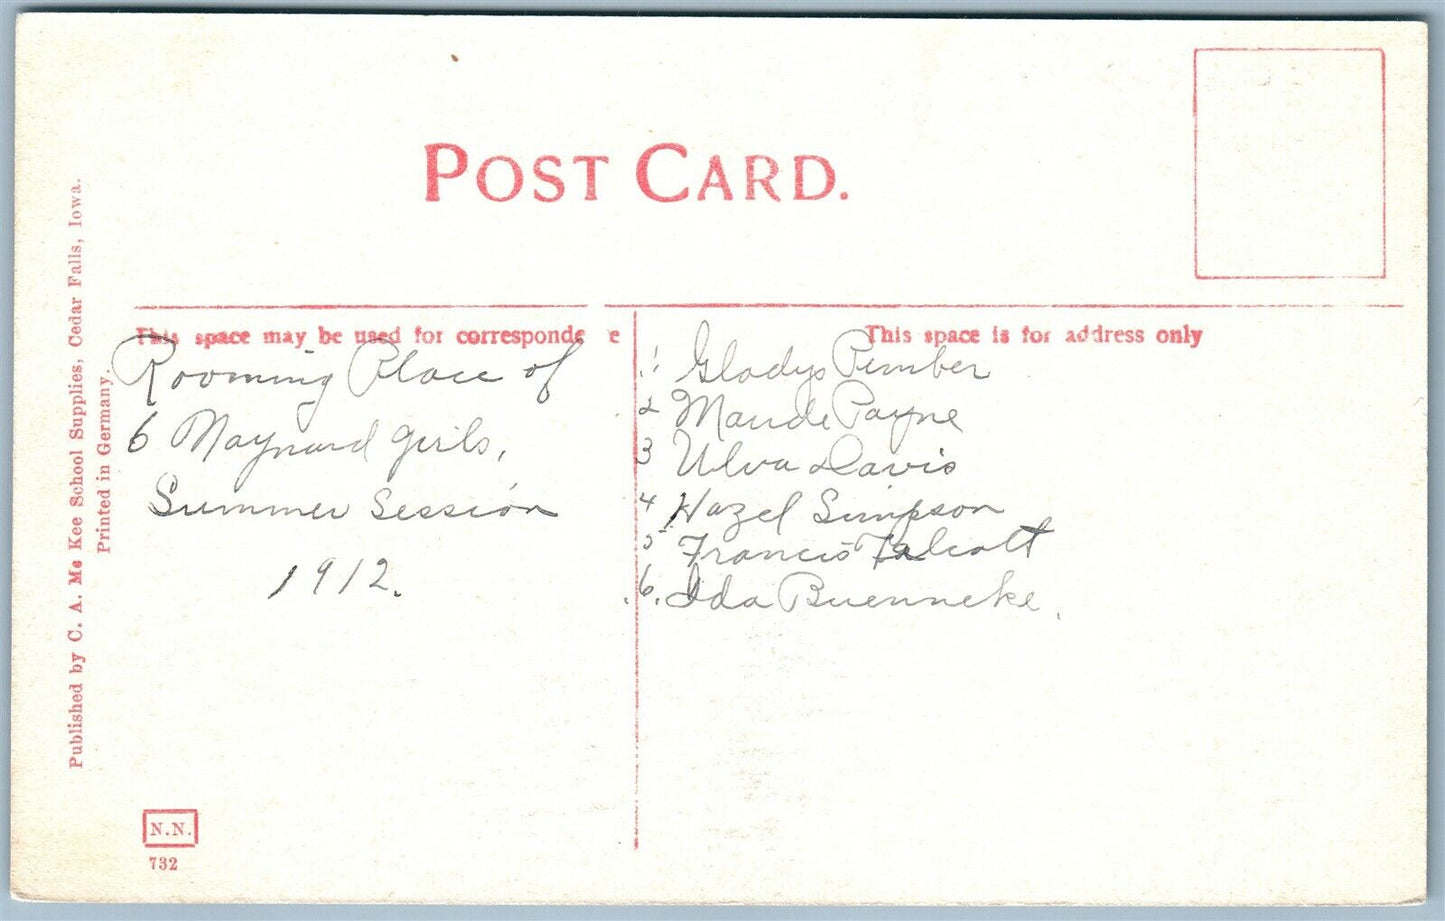 POST CARD.
Published by C. A. Mc Kee School Supplies, Cedar Falls, Iowa.
Printed in Germany.
This space may be used for corresponde e
Rooming Place of
6 Maynard girls,
Summer Session
1912.
This space is for address only
1 Gladys Pember
2 Maude Payne
3 Ulva Davis
4 Hazel Simpson
5 Francis Talcott
6. Ida Buenneke.
N.N.
732